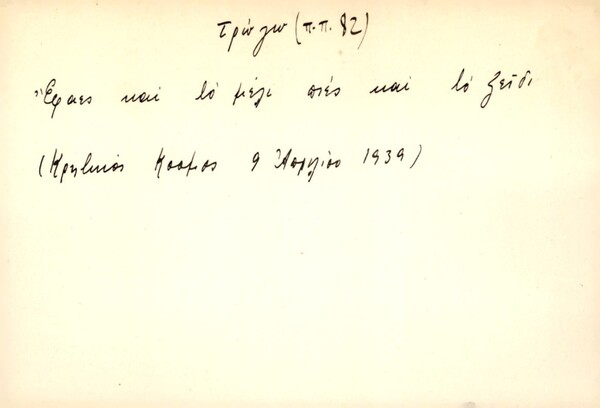 τρώγω (π.π. 82)
Ἔφαες καί τό μέλι πιές καί τό ξεῖδι
(Κρητικός Κόσμος 9 Ἀπριλίου 1939)